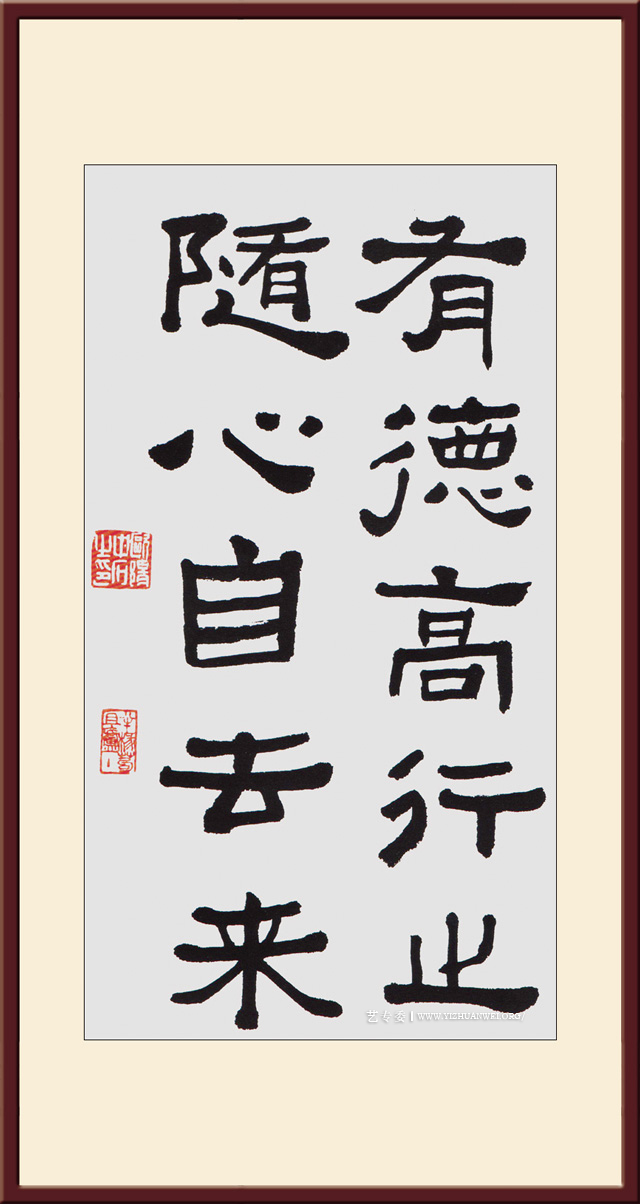 有德高行止
随心自去来
欧阳中石之印
艺专委 | WWW.YIZHUANWEI.ORG